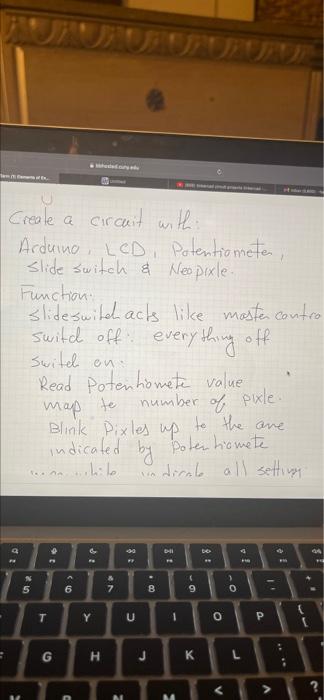 Create a circuit with:
Arduino, LCD, Potentiometer,
slide switch & Neopixle.
Function:
slideswitch acts like master contro
switch off: everything off
switch on:
Read Potentiometer value
map to number of pixle.
Blink Pixles up to the one
indicated by Potentiometer
indicate all settings
% 5
^ 6
& 7
* 8
( 9
) 0
T Y U I O P
G H J K L
< > ?